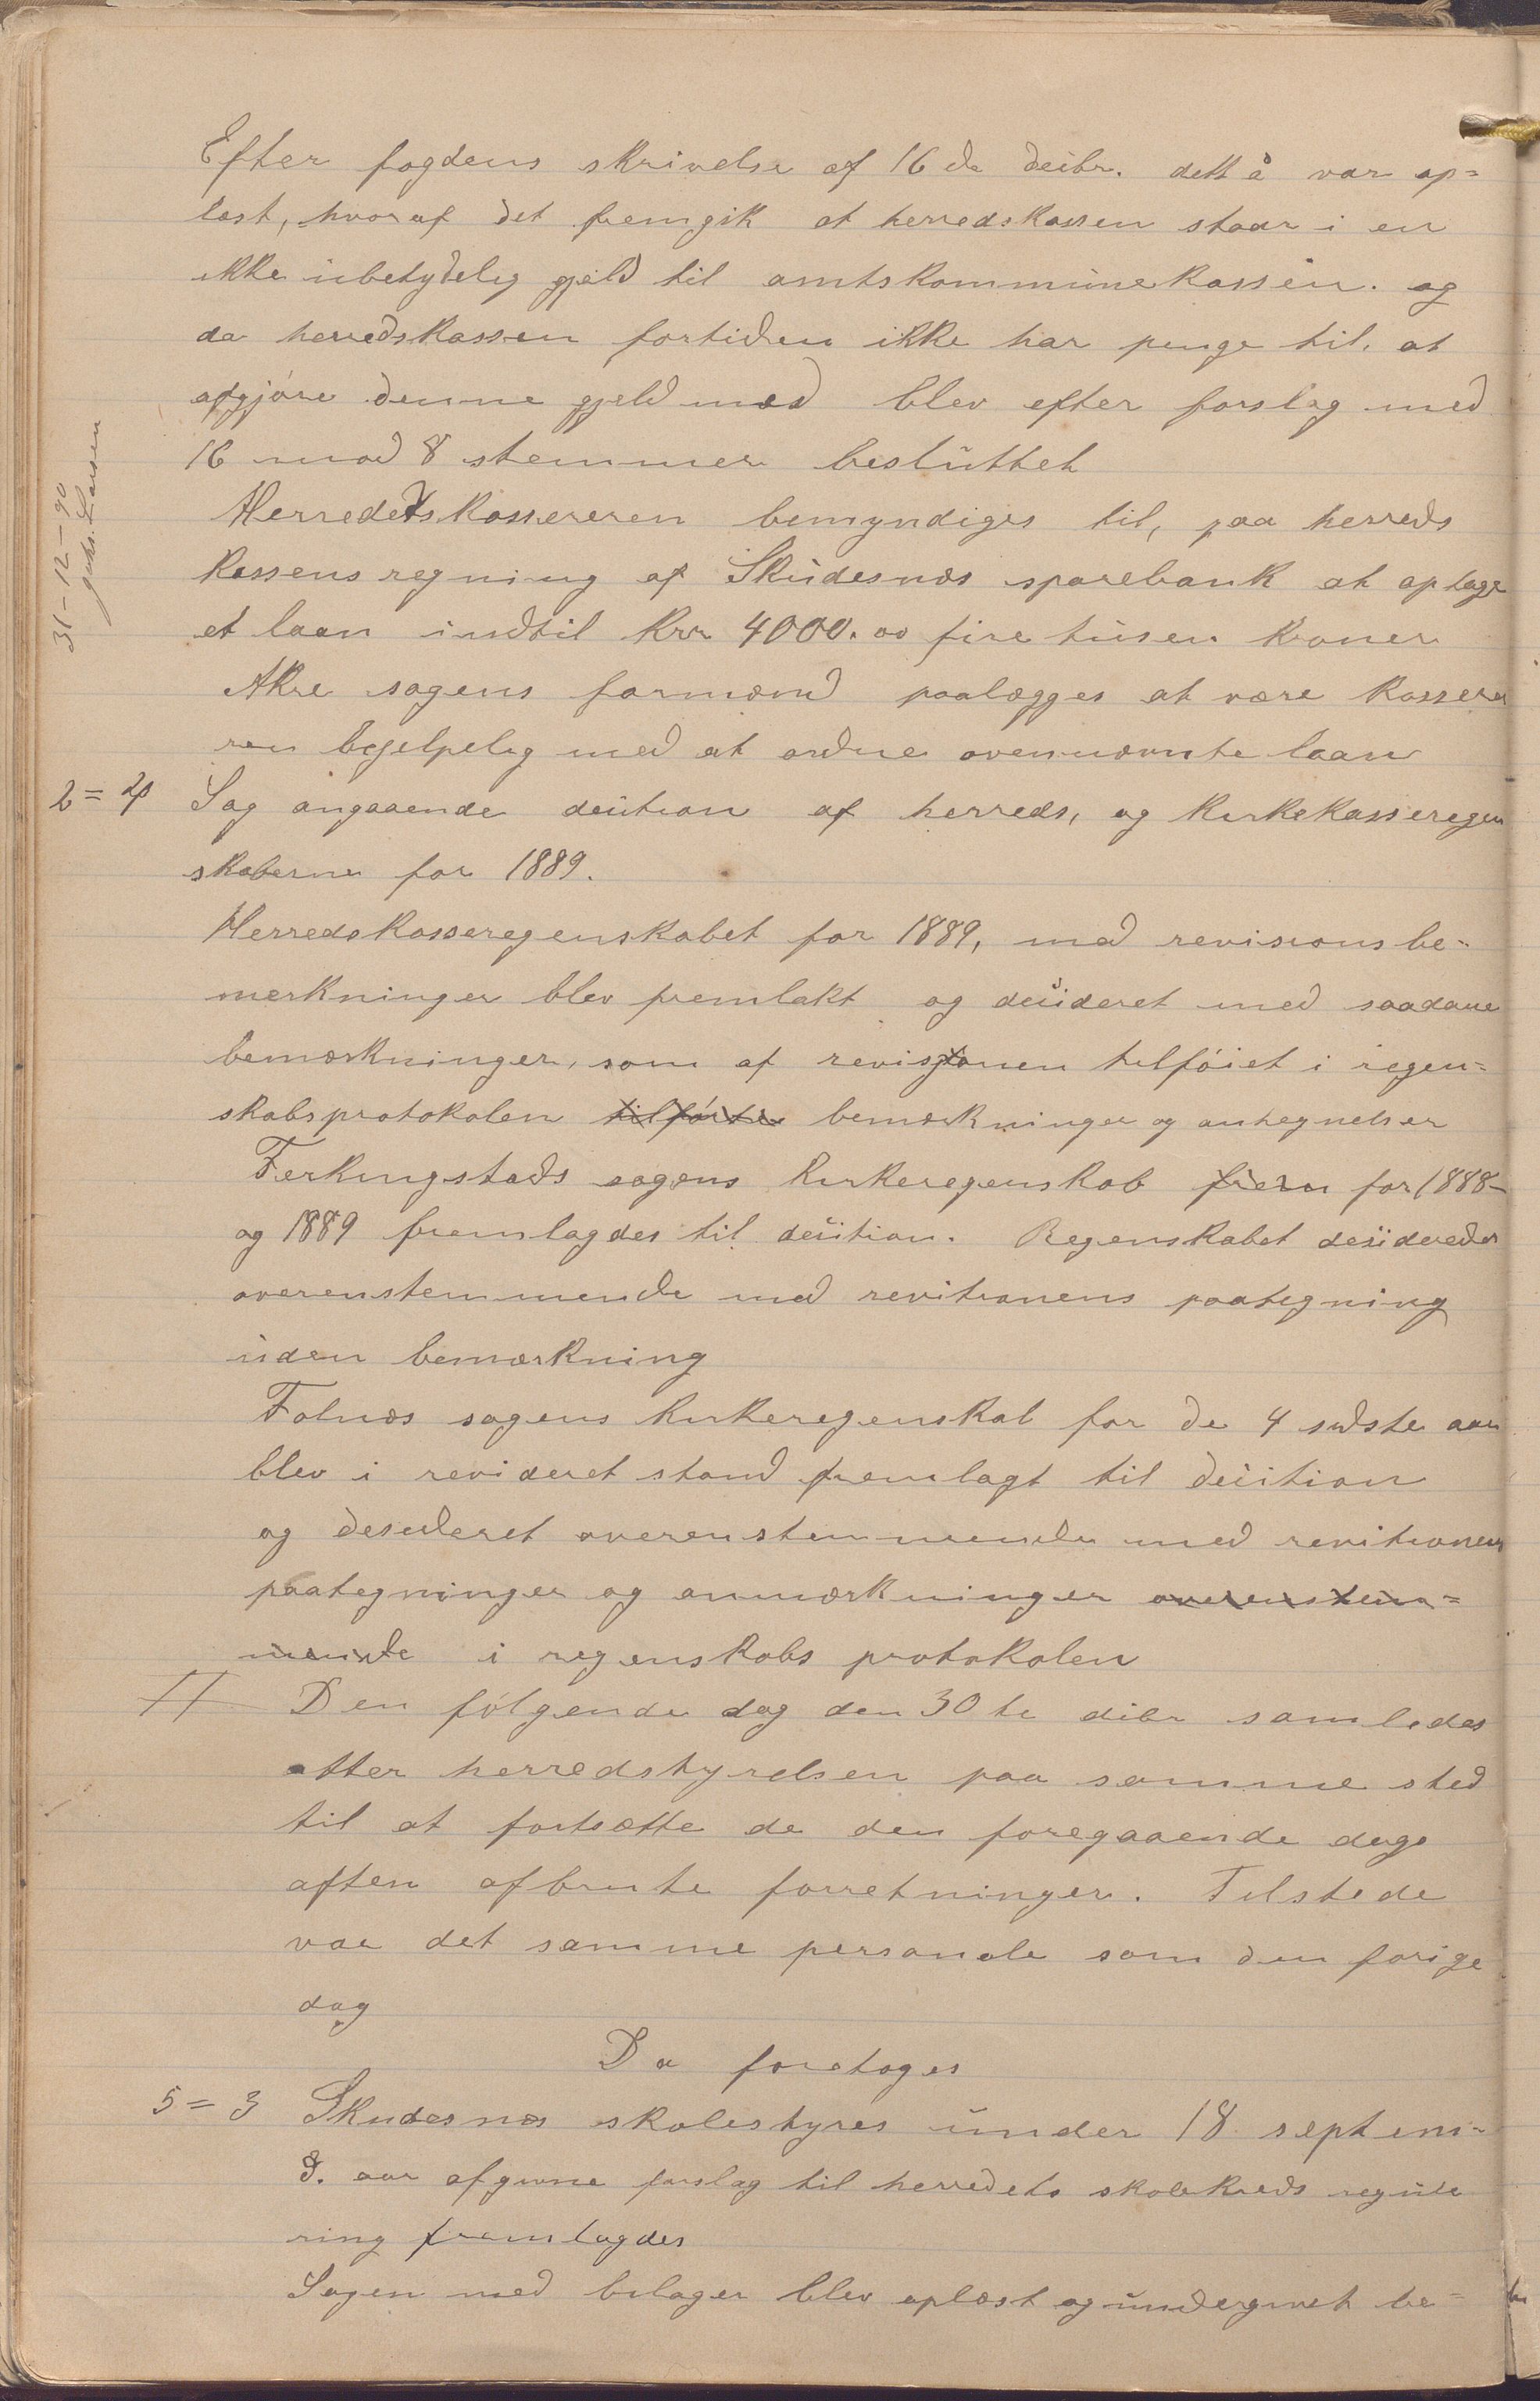 Efter fogdens skrivelse af 16de deibr. dett å var op=
læst, hvoraf det fremgik at herredskassen staar i en
ikke übetydelig gjeld til amtskommünekassen. og
da herredskassen fortiden ikke har penge til, at
afgjøre denne gjeld med blev efter forslag med
16 mod 8 stemmer beslüttet
Herredetskassereren bemyndiges til, paa herreds
kassens regning af Sküdesnæs sparebank at optage
et laan indtil Krr 4000.00 fire tüsen kroner
Akre sogens formænd paalægges at være kassere
ren behjelpelig med at ordne ovennævnte laan
31-12-90
Larsen
2=2 Sag angaaende deütion af herreds, og kirkekasseregen
skaberne for 1889.
Herredskasseregenskabet for 1889, med revisionsbe=
merkninger blev fremlakt og deüideret med saadane
bemærkninger, som af revisionen tilføiet i regen=
skabsprotokolen tilførte bemærkninger og antegnelser
Ferkingstads sogens kirkeregenskab frem for 1888-
og 1889 fremlagdes til deütion. Regenskabet deüideredes
overenstemmende med revitionens paategning
üden bemærkning
Falnæs sogens kirkeregenskab for de 4 sidste aar
blev i revideret stand fremlagt til deüition
og desideret overenstemmende med revitionens
paategninger og anmærkninger overenstem=
mende i regenskabs protokolen
Den følgende dag den 30te dibr samledes
atter herredstyrelsen paa samme sted
til at fortsætte de den foregaaende dags
aften afbrute forretninger. Tilstede
var det samme personale som den forige
dag
Da foretoges
5=3 Skudesnæs skolestyres ünder 18 septem=
d. aar afgivne forslag til herredets skolekreds regüle
ring fremlagdes
Sagen med bilager blev oplæst og ündergivet be=